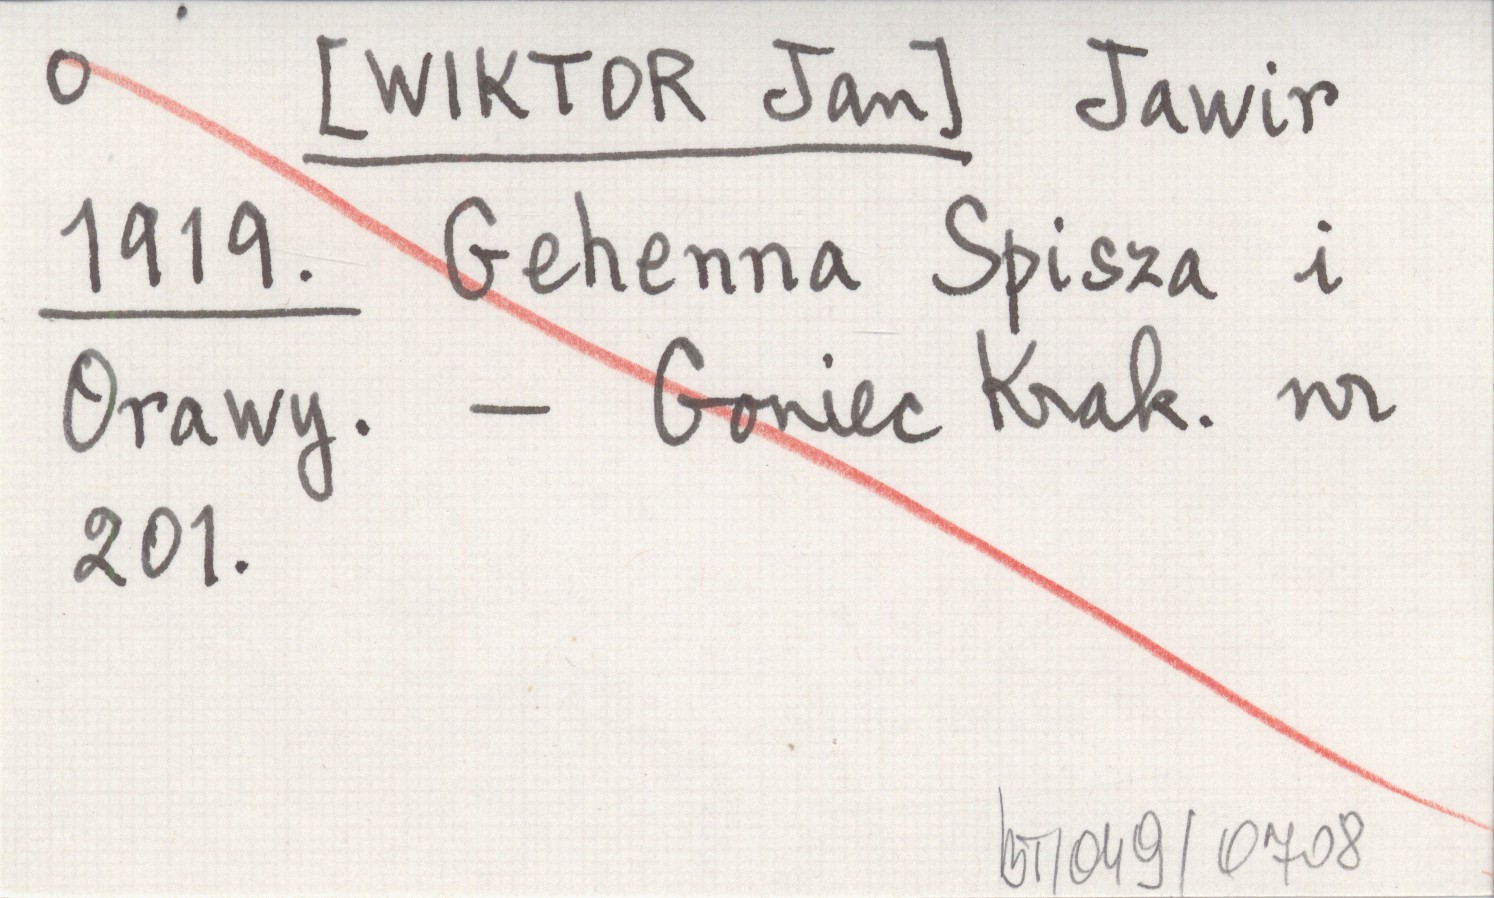 O [WIKTOR Jan] Jawir
1919. Gehenna Spisza i
Orawy. — Goniec Krak. nr
201.
BT/049/0708